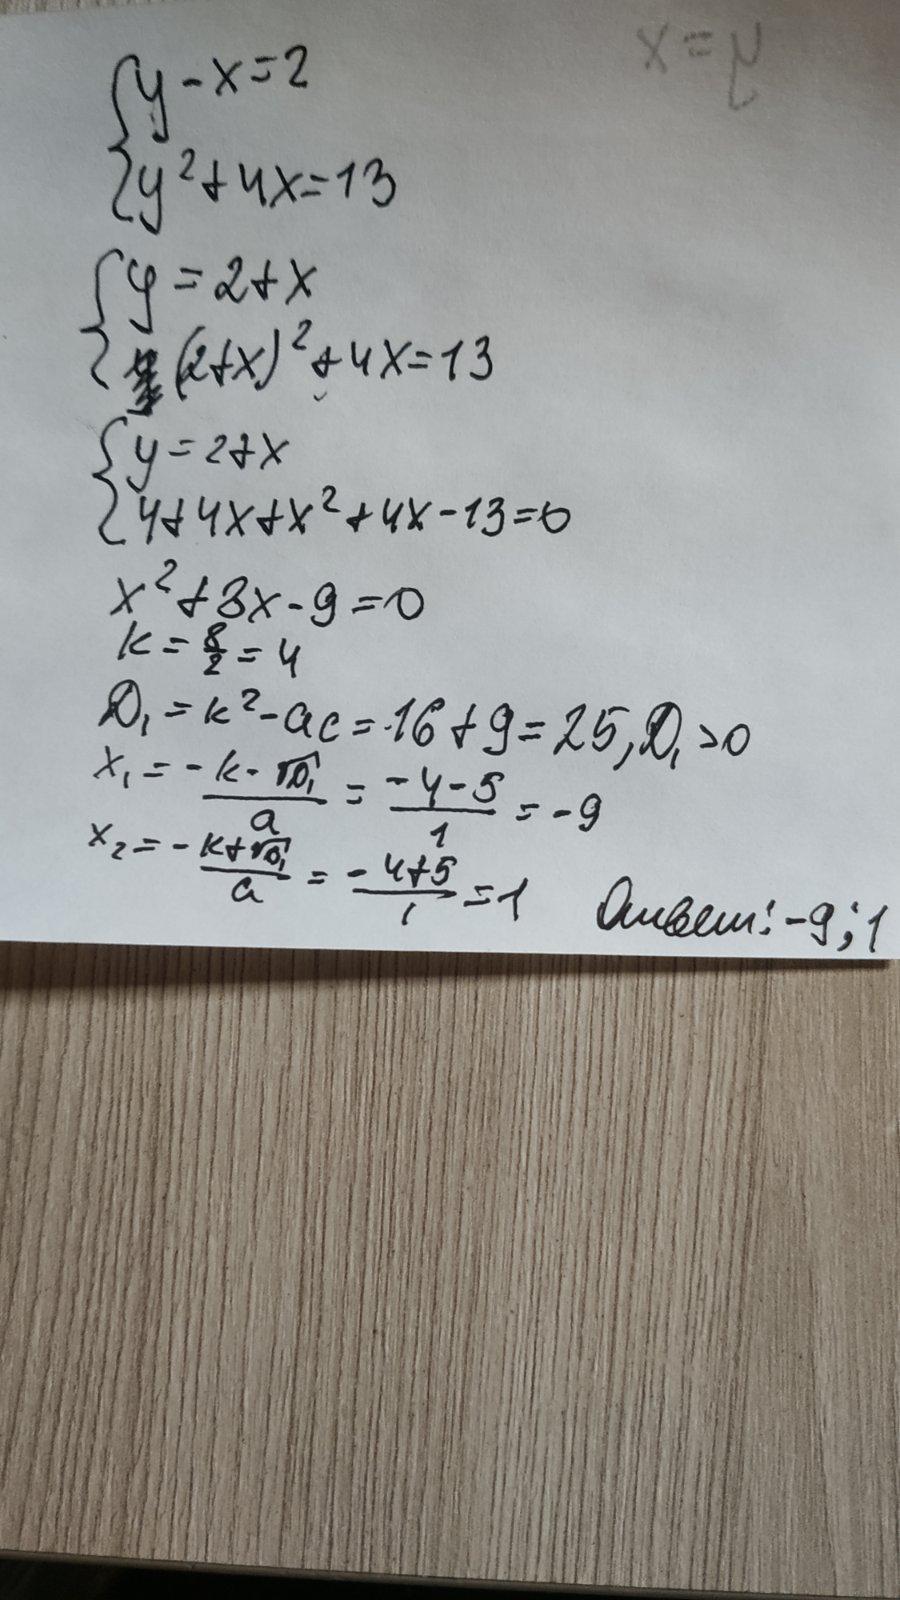 x = y
y - x = 2
y² + 4x = 13
y = 2 + x
(2 + x)² + 4x = 13
y = 2 + x
4 + 4x + x² + 4x - 13 = 0
x² + 8x - 9 = 0
k = 8/2 = 4
D₁ = k² - ac = 16 + 9 = 25, D₁ > 0
x₁ = (-k - √D₁)/a = (-4 - 5)/1 = -9
x₂ = (-k + √D₁)/a = (-4 + 5)/1 = 1
Ответ: -9; 1